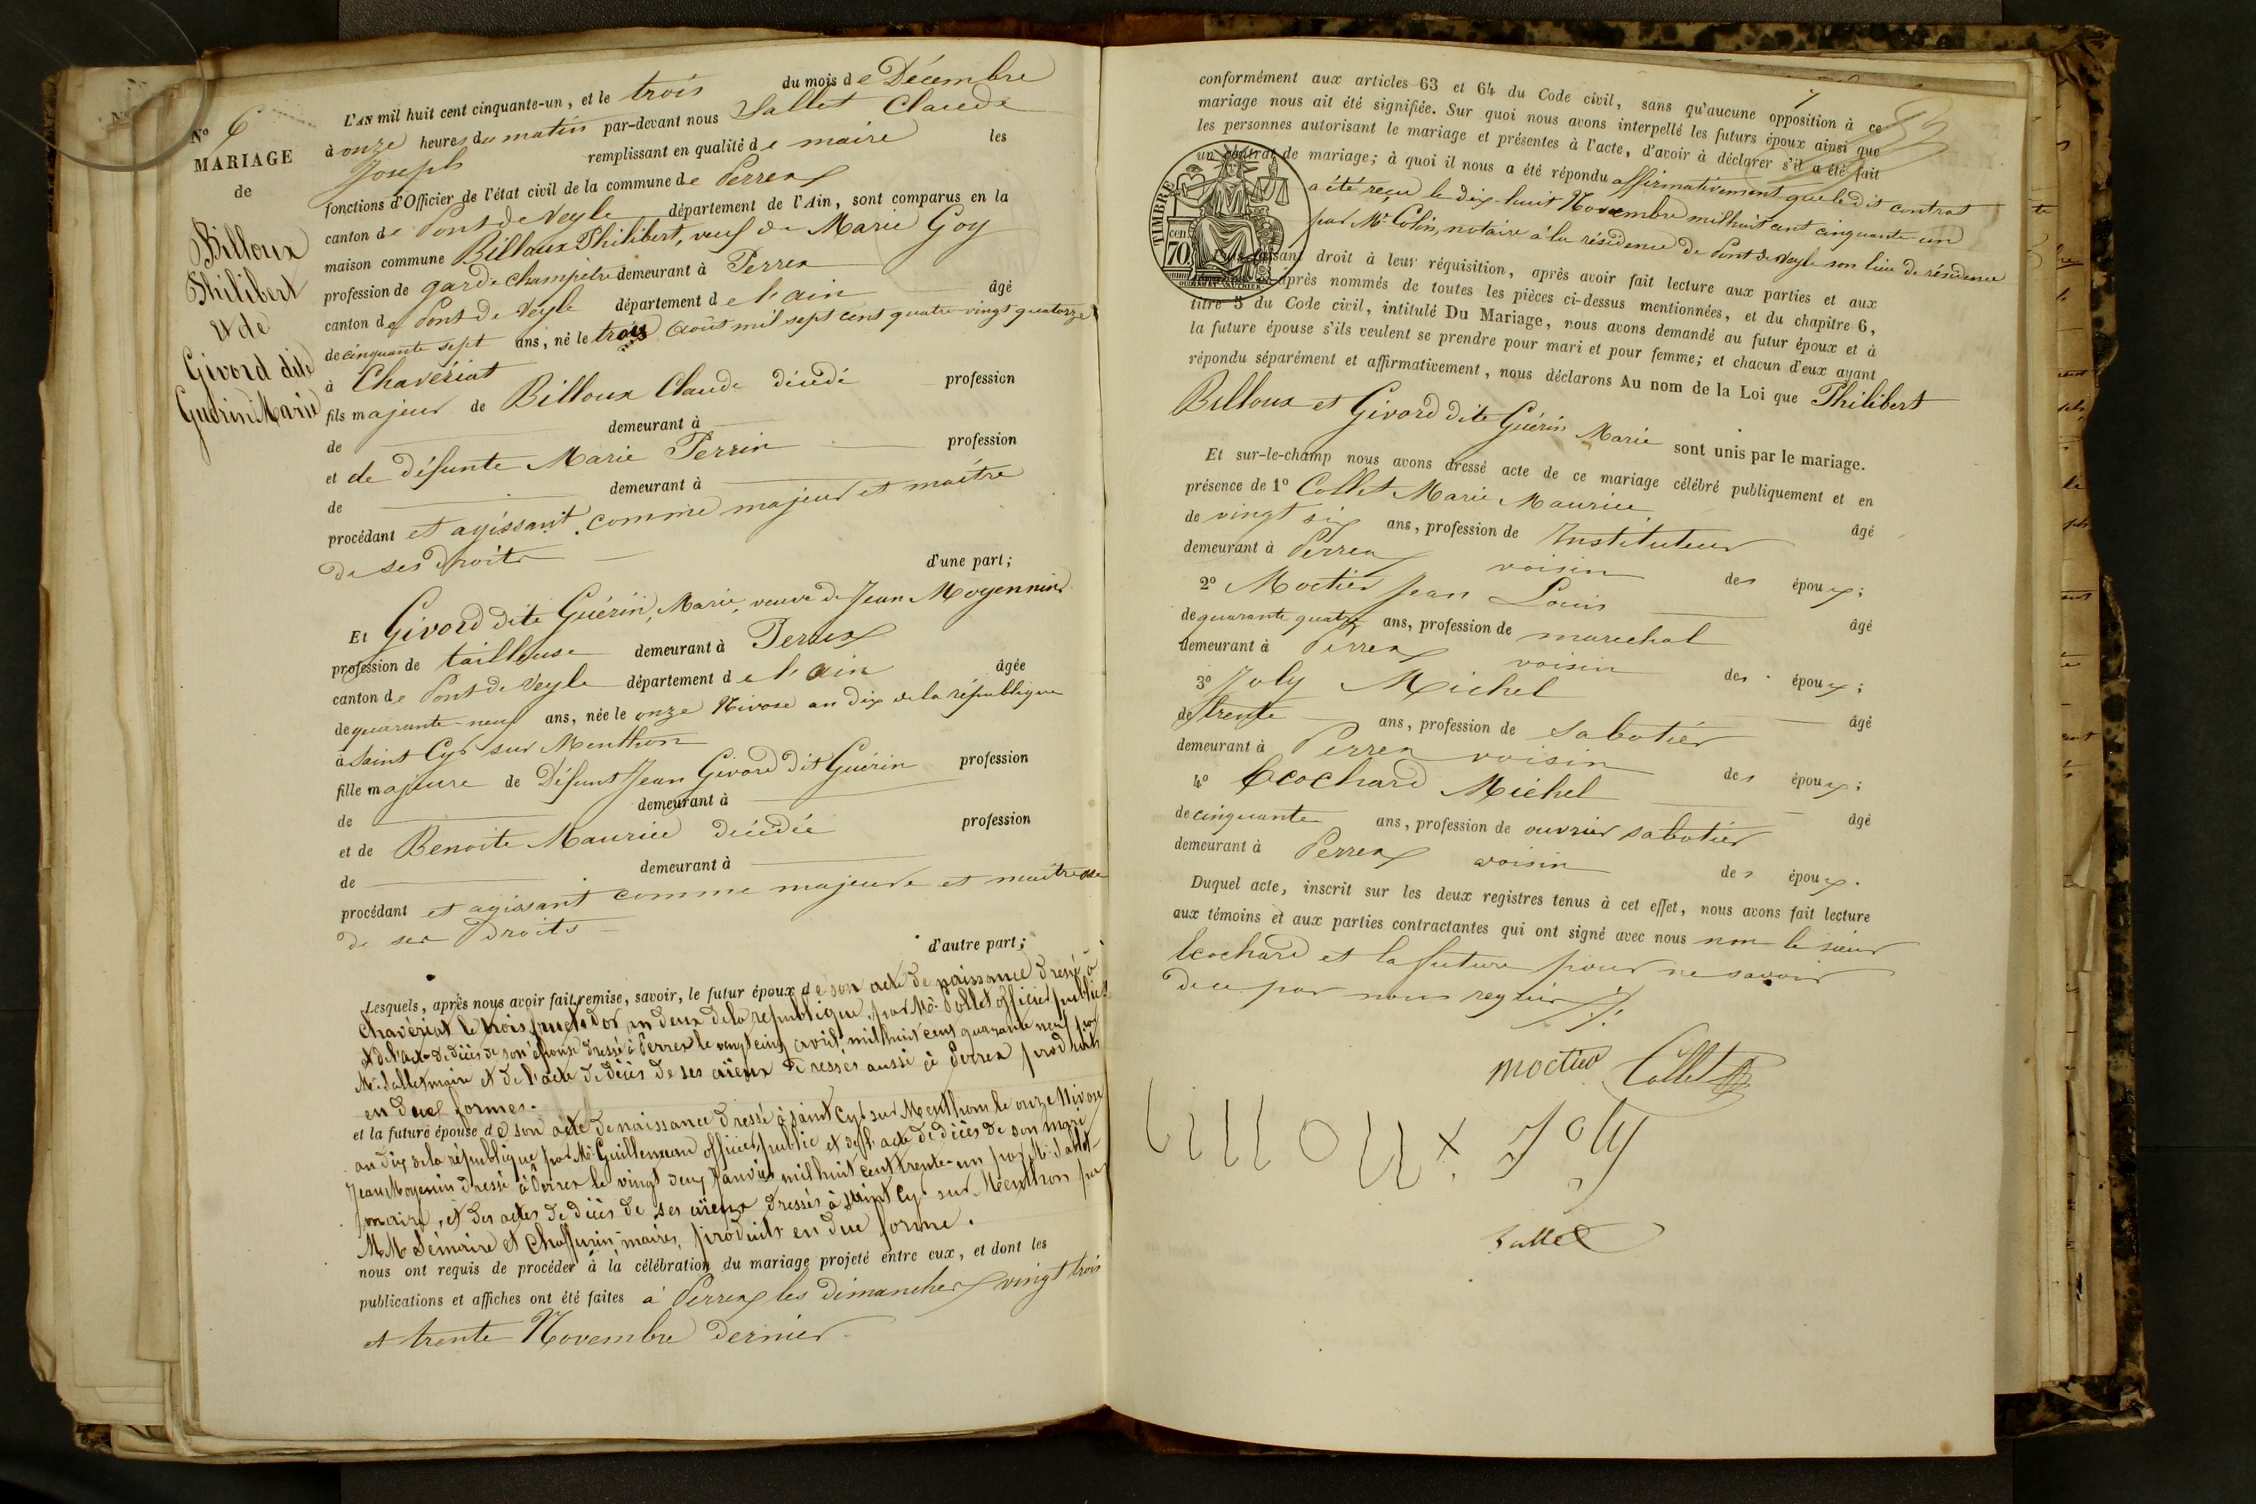 N° 6
MARIAGE
de
Billoux
Philibert
et de
Givord dite
Guérin Marie
L'AN mil huit cent cinquante-un, et le trois du mois de Décembre
à onze heures du matin par-devant nous Sallet Claude
Joseph remplissant en qualité de maire les
fonctions d'Officier de l'état civil de la commune de Perrex
canton de Pont de Veyle département de l'Ain, sont comparus en la
maison commune Billoux Philibert, veuf de Marie Goy
profession de garde champêtre demeurant à Perrex
canton de Pont de Veyle département de l'ain âgé
de cinquante sept ans, né le trois Août mil sept cent quatre vingt quatorze
à Chavériat
fils majeur de Billoux Claude décédé profession
de demeurant à
et de défunte Marie Perrin profession
de demeurant à
procédant et agissant comme majeur et maître
de ses droits d'une part;
Et Givord dite Guérin, Marie, veuve de Jean Moyennin
profession de tailleuse demeurant à Perrex
canton de Pont de Veyle département de l'ain âgée
de quarante-neuf ans, née le onze Nivose an dix de la république
à Saint Cyr sur Menthon
fille majeure de Défunt Jean Givord dit Guérin profession
de demeurant à
et de Benoite Maurice décédée profession
de demeurant à
procédant et agissant comme majeure et maîtresse
de ses droits
d'autre part;
Lesquels, après nous avoir fait remise, savoir, le futur époux de son acte de naissance dressé à
Chavériat le trois fructidor an deux de la république par Mr Pollet officier public
et de l'acte de décès de son épouse dressé à Perrex le vingt cinq avril mil huit cent quarante neuf par
Mr Sallet maire et de l'acte de décès de ses aïeux dressés aussi à Perrex produits
en due formes.
et la future épouse de son acte de naissance dressé à saint Cyr sur Menthon le onze Nivose
an dix de la république par Mr Guillemeau officier public et de l'acte de décès de son mari
Jean Moyenin dressé à Perrex le vingt deux Janvier mil huit cent trente-un par Mr Sallet
maire, et des actes de décès de ses aïeux dressés à saint Cyr sur Menthon par
MM Sémaire et Chaffurin maires, produits en due forme.
nous ont requis de procéder à la célébration du mariage projeté entre eux, et dont les
publications et affiches ont été faites à Perrex les dimanches vingt trois
et trente Novembre dernier
7
conformément aux articles 63 et 64 du Code civil, sans qu'aucune opposition à ce
mariage nous ait été signifiée. Sur quoi nous avons interpellé les futurs époux ainsi que
les personnes autorisant le mariage et présentes à l'acte, d'avoir à déclarer s'il a été fait
un contrat de mariage; à quoi il nous a été répondu affirmativement que le dit contrat
a été reçu le dix-huit Novembre mil huit cent cinquante un
par Mr Colin, notaire à la résidence de Pont de Veyle son lieu de résidence
TIMBRE
70 cen
faisant droit à leur réquisition, après avoir fait lecture aux parties et aux
ci-après nommés de toutes les pièces ci-dessus mentionnées, et du chapitre 6,
titre 5 du Code civil, intitulé Du Mariage, nous avons demandé au futur époux et à
la future épouse s'ils veulent se prendre pour mari et pour femme; et chacun d'eux ayant
répondu séparément et affirmativement, nous déclarons Au nom de la Loi que Philibert
Billoux et Givord dite Guérin Marie sont unis par le mariage.
Et sur-le-champ nous avons dressé acte de ce mariage célébré publiquement et en
présence de 1° Collet Marie Maurice âgé
de vingt six ans, profession de Instituteur
demeurant à Perrex voisin des époux;
2° Moctier Jean Louis âgé
de quarante quatre ans, profession de marechal
demeurant à Perrex voisin des époux;
3° Joly Michel âgé
de trente ans, profession de sabotier
demeurant à Perrex voisin des époux;
4° Ecochard Michel âgé
de cinquante ans, profession de ouvrier sabotier
demeurant à Perrex voisin des époux.
Duquel acte, inscrit sur les deux registres tenus à cet effet, nous avons fait lecture
aux témoins et aux parties contractantes qui ont signé avec nous non le sieur
Ecochard et la future pour ne savoir
de ce par nous requis
moctier Collet
billoux Joly
Sallet